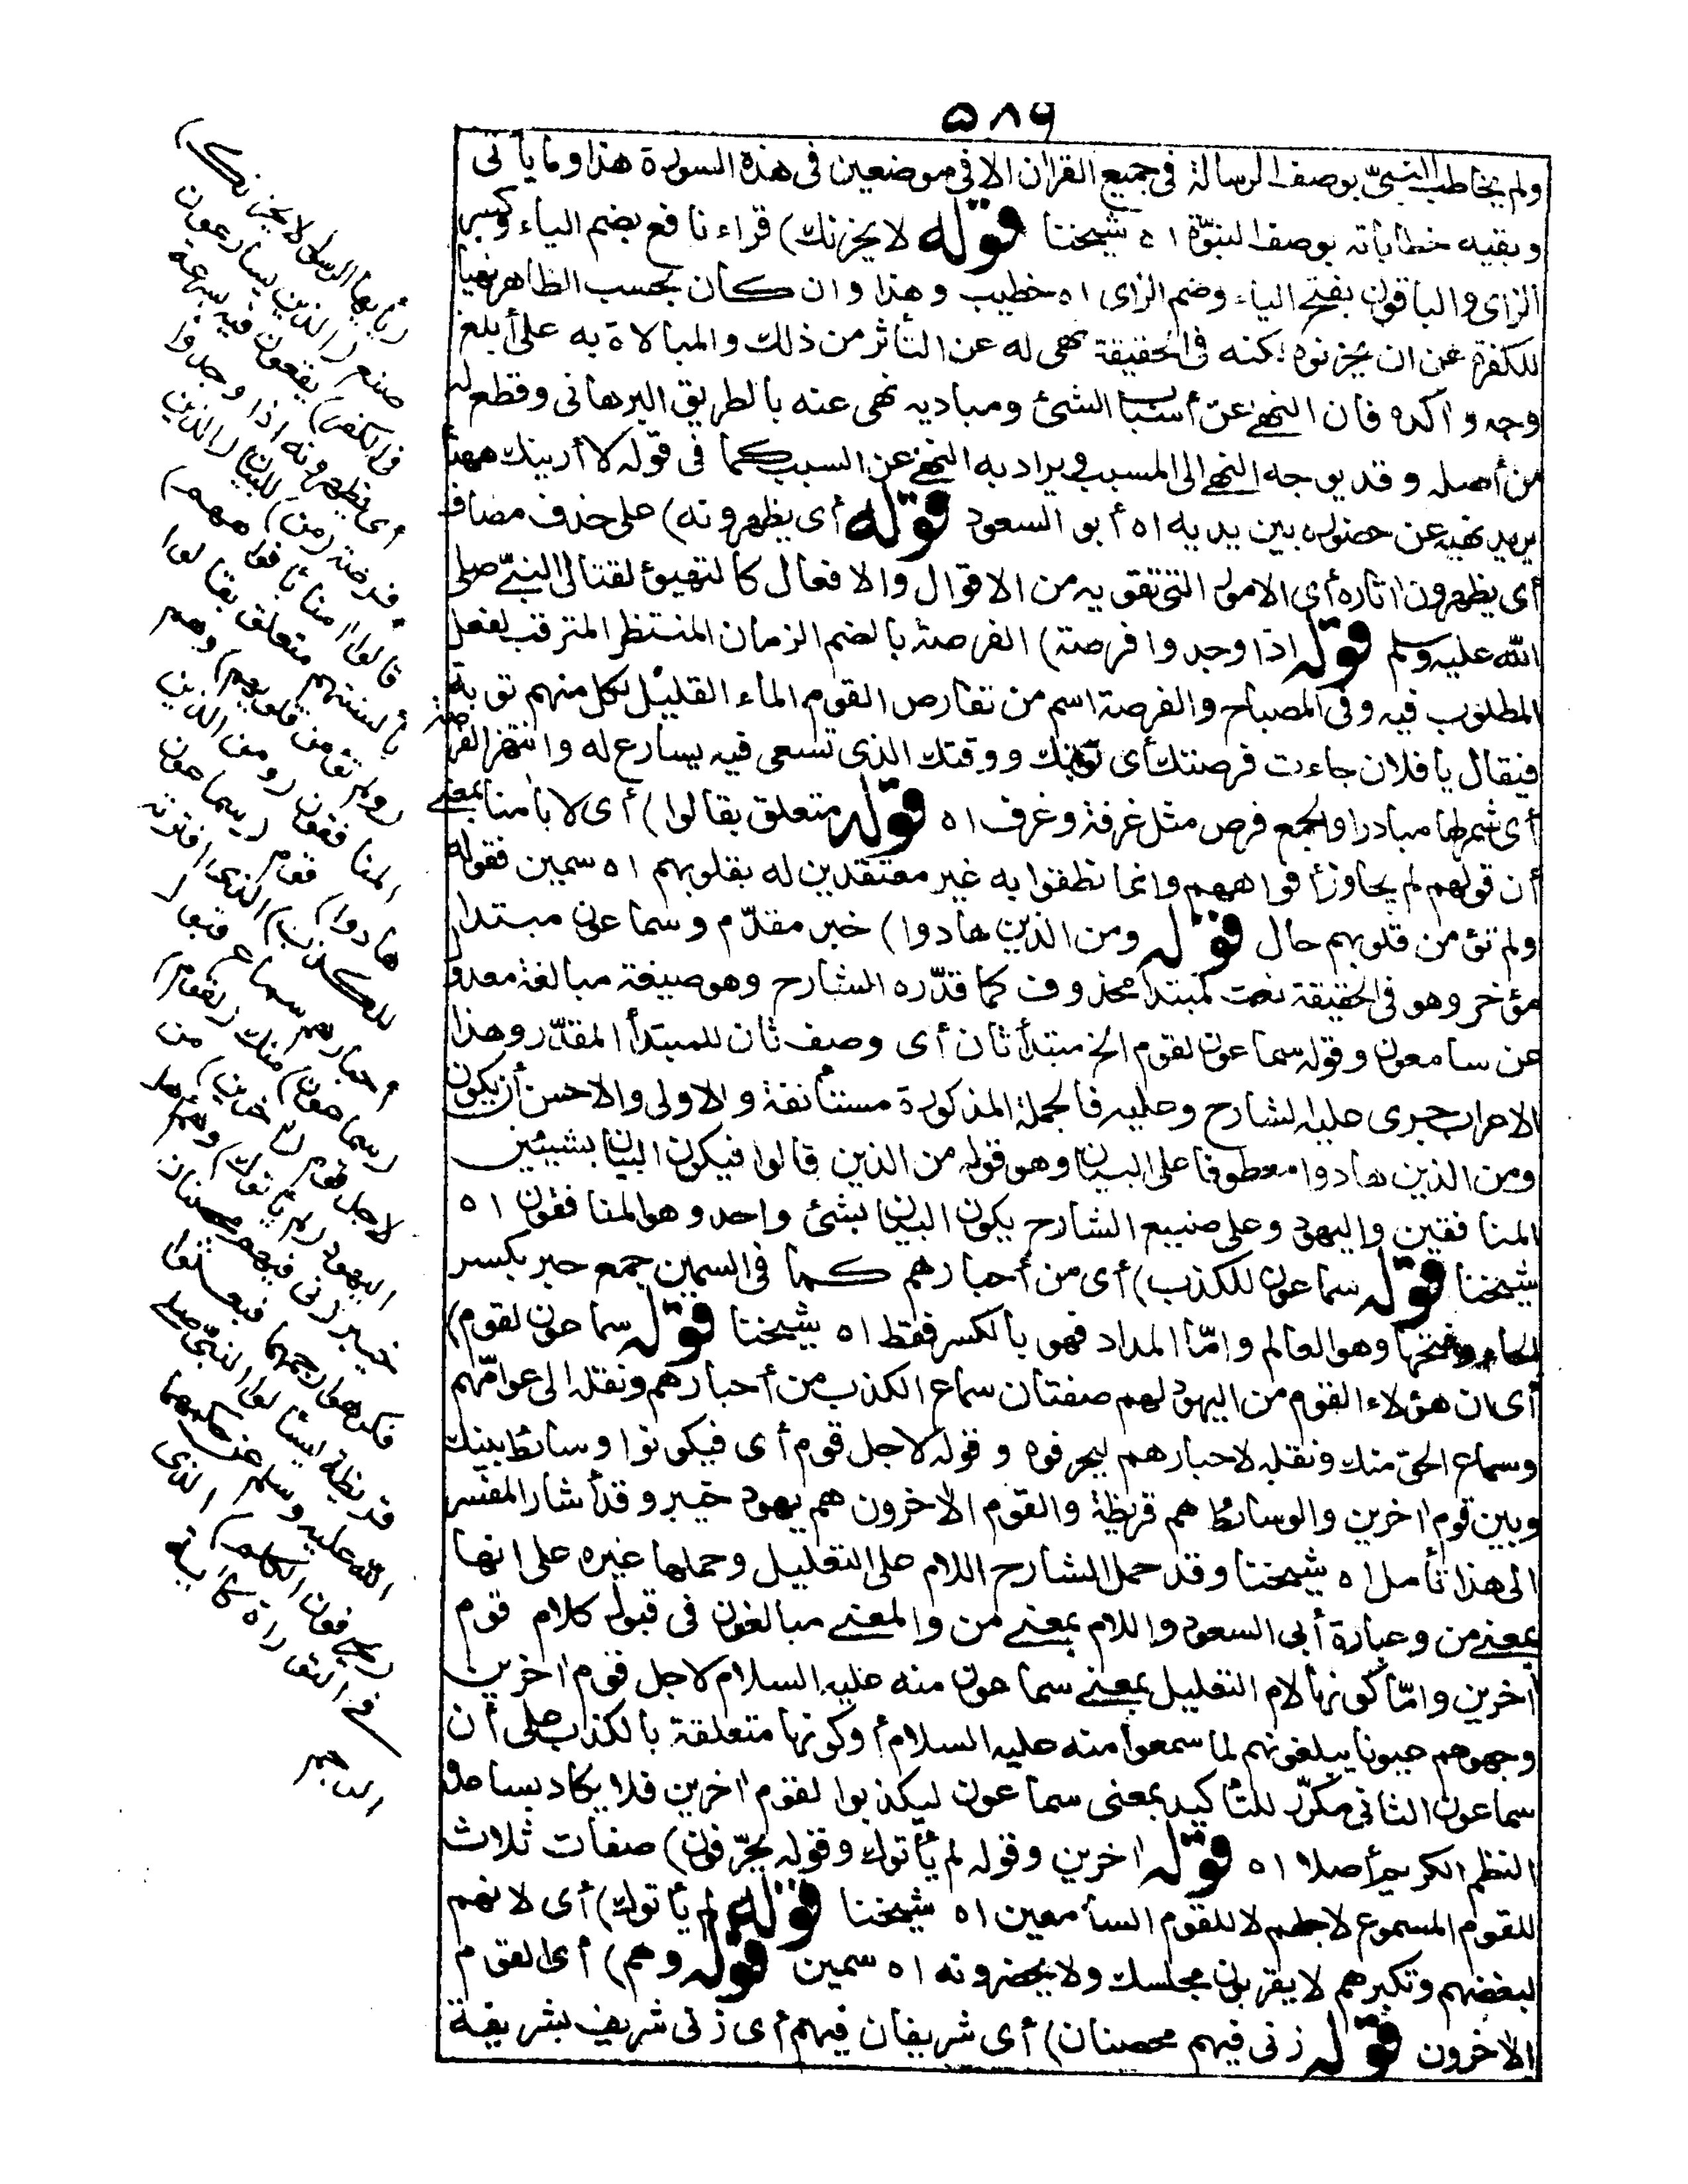 ٥٨٦
ولم يخاطب النبيّ بوصف الرسالة فى جميع القران الا فى موضعين فى هذه السورة هذا وما يأتى
وبقيه خطاباته بوصف النبوّة اه شيخنا قوله لا يحزنك) قراء نافع بضم الياء وكسر
الزاى والباقون بفتح الياء وضم الزاى اه خطيب وهذا وان كان بحسب الظاهر نهيا
للكفرة عن ان يحزنوه لكنه فى الحقيقة نهى له عن التأثر من ذلك والمبالاة به على أبلغ
وجه واكده فان النهى عن أسباب الشئ ومباديه نهى عنه بالطريق البرهانى وقطع له
من أصله وقد يوجه النهى الى المسبب ويراد به النهى عن السبب كما فى قوله لا أرينك ههنا
يريد نهيه عن حضوره بين يديه اه أبو السعود قوله أى يظهرونه) على حذف مضاف
أى يظهرون اثاره أى الامور التى تقويه من الاقوال والافعال كالتهيؤ لقتال النبىّ صلى
الله عليه وسلم قوله اذا وجدوا فرصة) الفرصة بالضم الزمان المنتظر المترقب لفعل
المطلوب فيه وفى المصباح والفرصة اسم من تفارص القوم الماء القليل لكل منهم نوبة
فيقال يا فلان جاءت فرصتك أى نوبتك ووقتك الذى تسعى فيه يسارع له وانتهز الفرصة
أى شمر لها مبادرا والجمع فرص مثل غرفة وغرف اه قوله متعلق بقالوا) أى لا بامنا بمعنى
أن قولهم لم يجاوز أفواههم وانما نطقوا به غير معتقدين له بقلوبهم اه سمين فقوله
ولم تؤمن قلوبهم حال قوله ومن الذين هادوا) خبر مقدّم وسماعون مبتدا
مؤخر وهو فى الحقيقة نعت لمبتدا محذوف كما قدّره الشارح وهو صيغة مبالغة معدول
عن سامعون وقوله سماعون لقوم الخ مبتدأ ثان أى وصف ثان للمبتدأ المقدّر وهذا
الاعراب جرى عليه الشارح وعليه فالجملة المذكورة مستأنفة والاولى والاحسن أن يكون
ومن الذين هادوا معطوفا على البيان وهو قوله من الذين قالوا فيكون البيان بشيئين
المنافقين واليهود وعلى صنيع الشارح يكون البيان بشئ واحد وهو المنافقون اه
شيخنا قوله سماعون للكذب) أى من أحبارهم كما فى السمين جمع حبر بكسر
الحاء وفتحها وهو العالم وامّا المداد فهو بالكسر فقط اه شيخنا قوله سماعون لقوم)
أى ان هؤلاء القوم من اليهود لهم صفتان سماع الكذب من أحبارهم ونقله الى عوامّهم
وسماع الحق منك ونقله لاحبارهم ليحرفوه وقوله لاجل قوم أى فيكونوا وسائط بينك
وبين قوم اخرين والوسائط هم قريظة والقوم الاخرون هم يهود خيبر وقد أشار المفسر
الى هذا تأمل اه شيخنا وقد حمل الشارح اللام على التعليل وحملها غيره على انها
بمعنى من وعبارة أبى السعود واللام بمعنى من والمعنى مبالغون فى قبول كلام قوم
اخرين وامّا كونها لام التعليل بمعنى سماعون منه عليه السلام لاجل قوم اخرين
وجهوهم عيونا يبلغونهم لما سمعوا منه عليه السلام أو كونها متعلقة بالكذب على أن
سماعون الثانى مكرّر للتأكيد بمعنى سماعون ليكذبوا لقوم اخرين فلا يكاد يساعده
النظم الكريم أصلا اه قوله اخرين وقوله لم يأتوك وقوله يحرّفون) صفات ثلاث
للقوم المسموع لاجلهم لا للقوم السامعين اه شيخنا قوله لم يأتوك) أى لانهم
لبغضهم وتكبرهم لا يقربون مجلسك ولا يحضرونه اه سمين قوله وهم) أى القوم
الاخرون قوله زنى فيهم محصنان) أى شريفان فيهم أى زنى شريف بشريفة
(يأيها الرسول لا يحزنك)
صنع (الذين يسارعون
فى الكفر) يقعون فيه بسرعة
أى يظهرونه اذا وجدوا
فرصة (من) للبيان (الذين
قالوا امنا بأفواههم)
بألسنتهم متعلق بقالوا
(ولم تؤمن قلوبهم) وهم
المنافقون (ومن الذين
هادوا) قوم (سماعون
للكذب) الذى افترته
أحبارهم سماع قبول
(سماعون) منك (لقوم)
لاجل قوم (اخرين) من
اليهود (لم يأتوك) وهم أهل
خيبر زنى فيهم محصنان
فكرهوا رجمهما فبعثوا
قريظة ليسألوا النبىّ صلى
الله عليه وسلم عن حكمهما
(يحرفون الكلم) الذى
فى التوراة كأية
الرجم